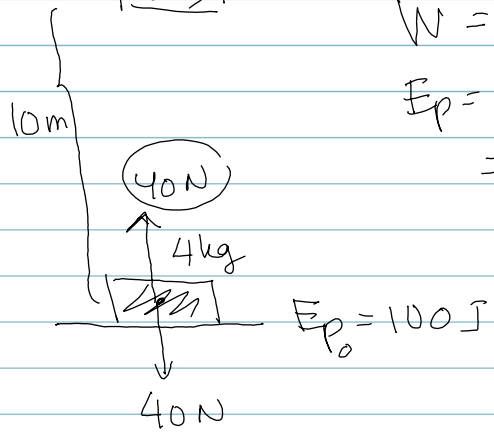 W =
Ep =
=
10m
40N
4kg
Ep₀ = 100J
40N